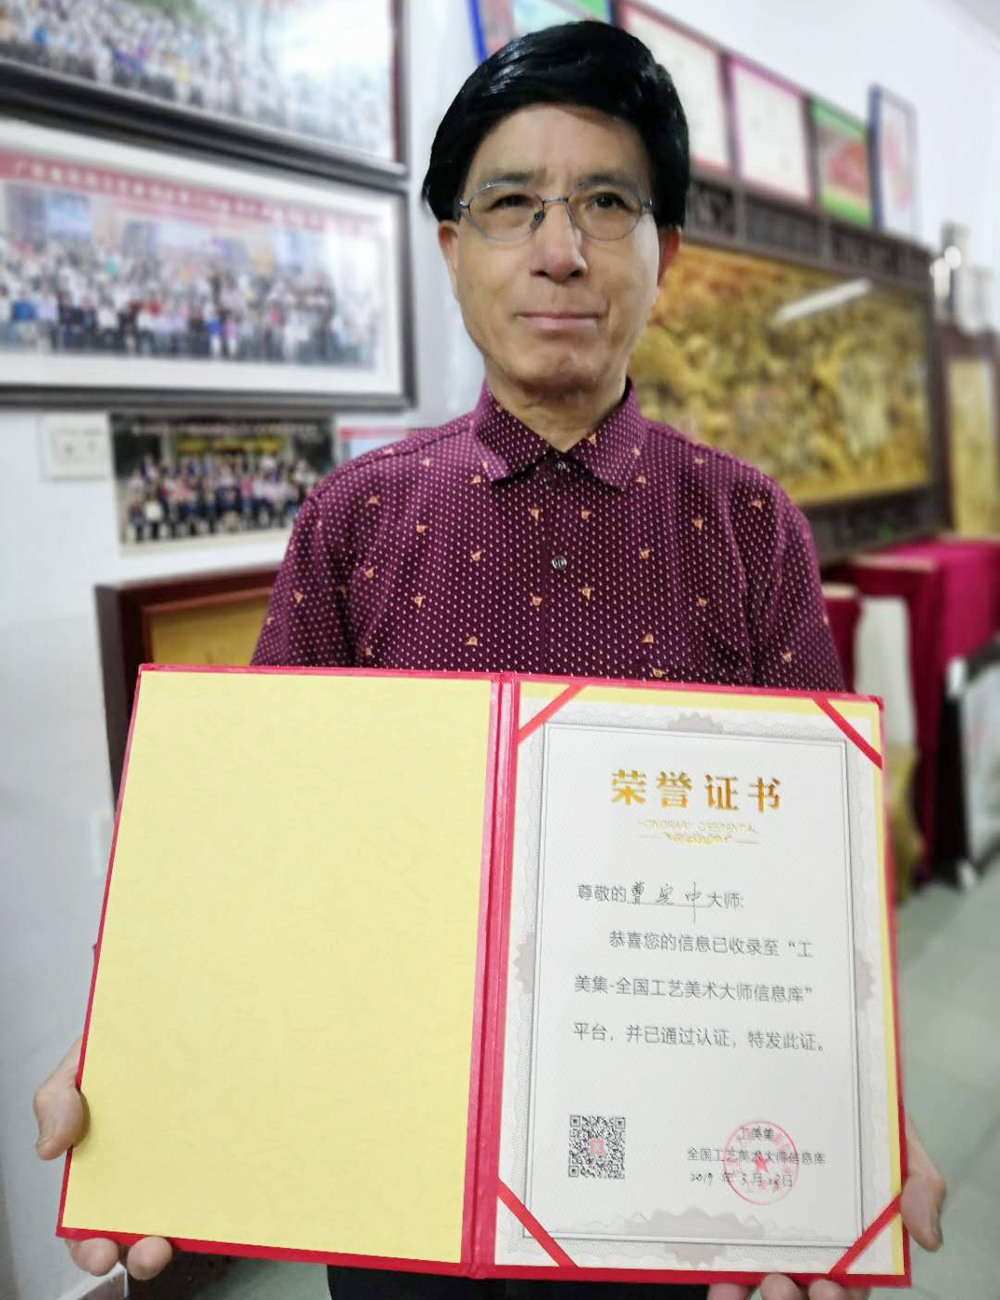 荣誉证书
HONORARY CREDENTIAL
尊敬的曹定中大师:
恭喜您的信息已收录至“工
美集-全国工艺美术大师信息库”
平台，并已通过认证，特发此证。
工美集
全国工艺美术大师信息库
2019年5月28日